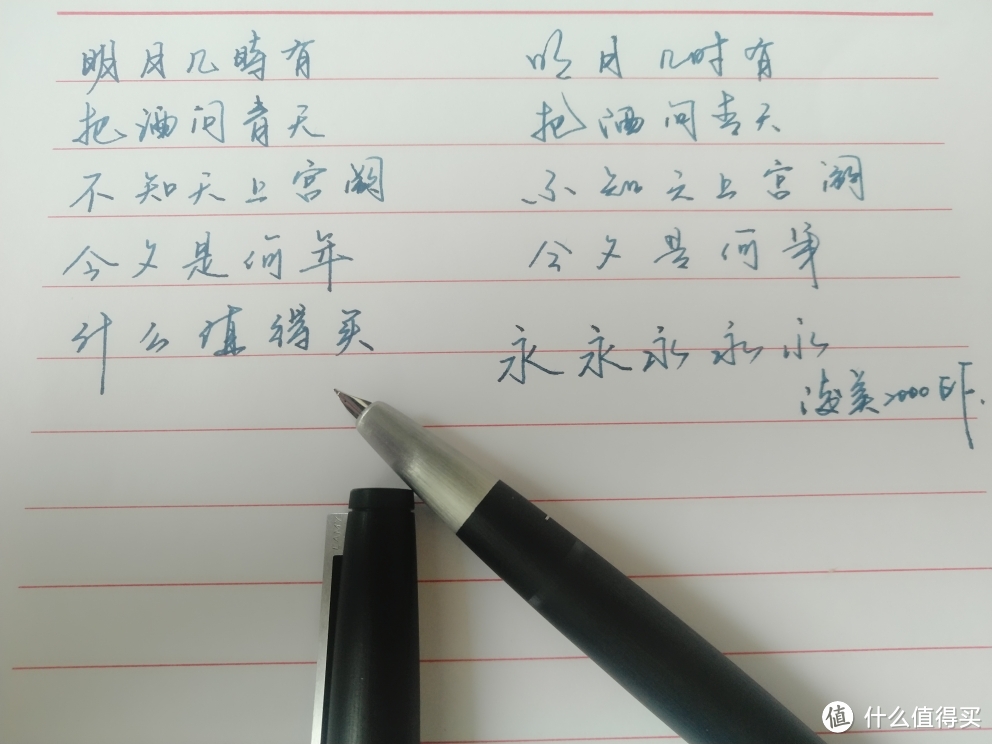 明月几時有
把酒问青天
不知天上宫阙
今夕是何年
什么值得买
明月几时有
把酒问青天
不知天上宫阙
今夕是何年
永永永永永
凌美2000
值 什么值得买